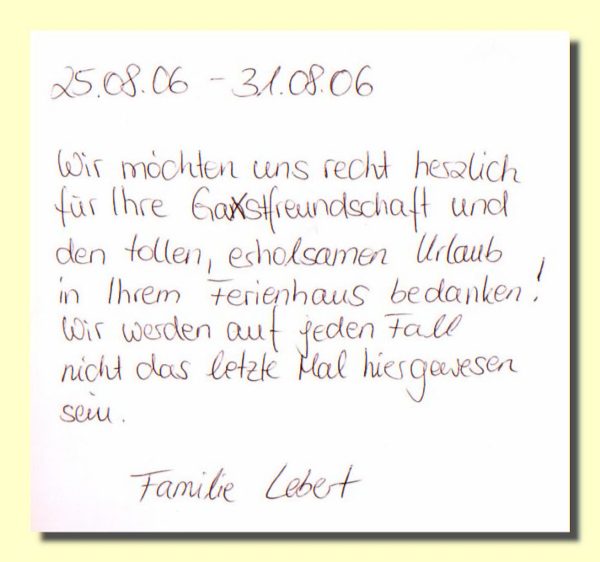 25.08.06 - 31.08.06
Wir möchten uns recht herzlich
für Ihre Gastfreundschaft und
den tollen, erholsamen Urlaub
in Ihrem Ferienhaus bedanken!
Wir werden auf jeden Fall
nicht das letzte Mal hiergewesen
sein.
Familie Lebert